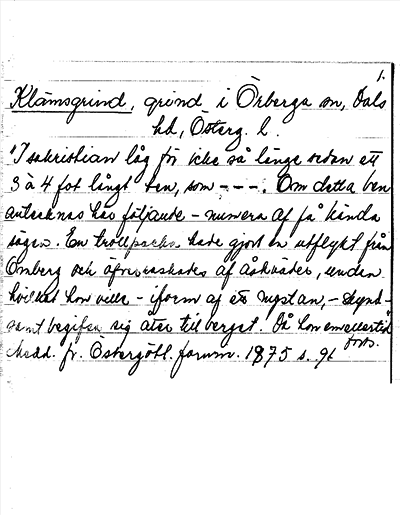 1.
Klämsgrind, grind i Örberga sn, Dals
hd, Österg. l.
"I sakristian låg för icke så länge sedan ett
3 à 4 fot långt ben, som - - -. Om detta ben
antecknas här följande - numera af få kända
sägen. En trollpacka hade gjort en utflykt från
Omberg och öfverraskades af åskväder, under
hvilket hon ville - i form af ett nystan, - skynd-
samt begifva sig åter till berget. Då hon emellertid
forts.
Medd. fr. Östergötl. fornm. 1875 s. 91